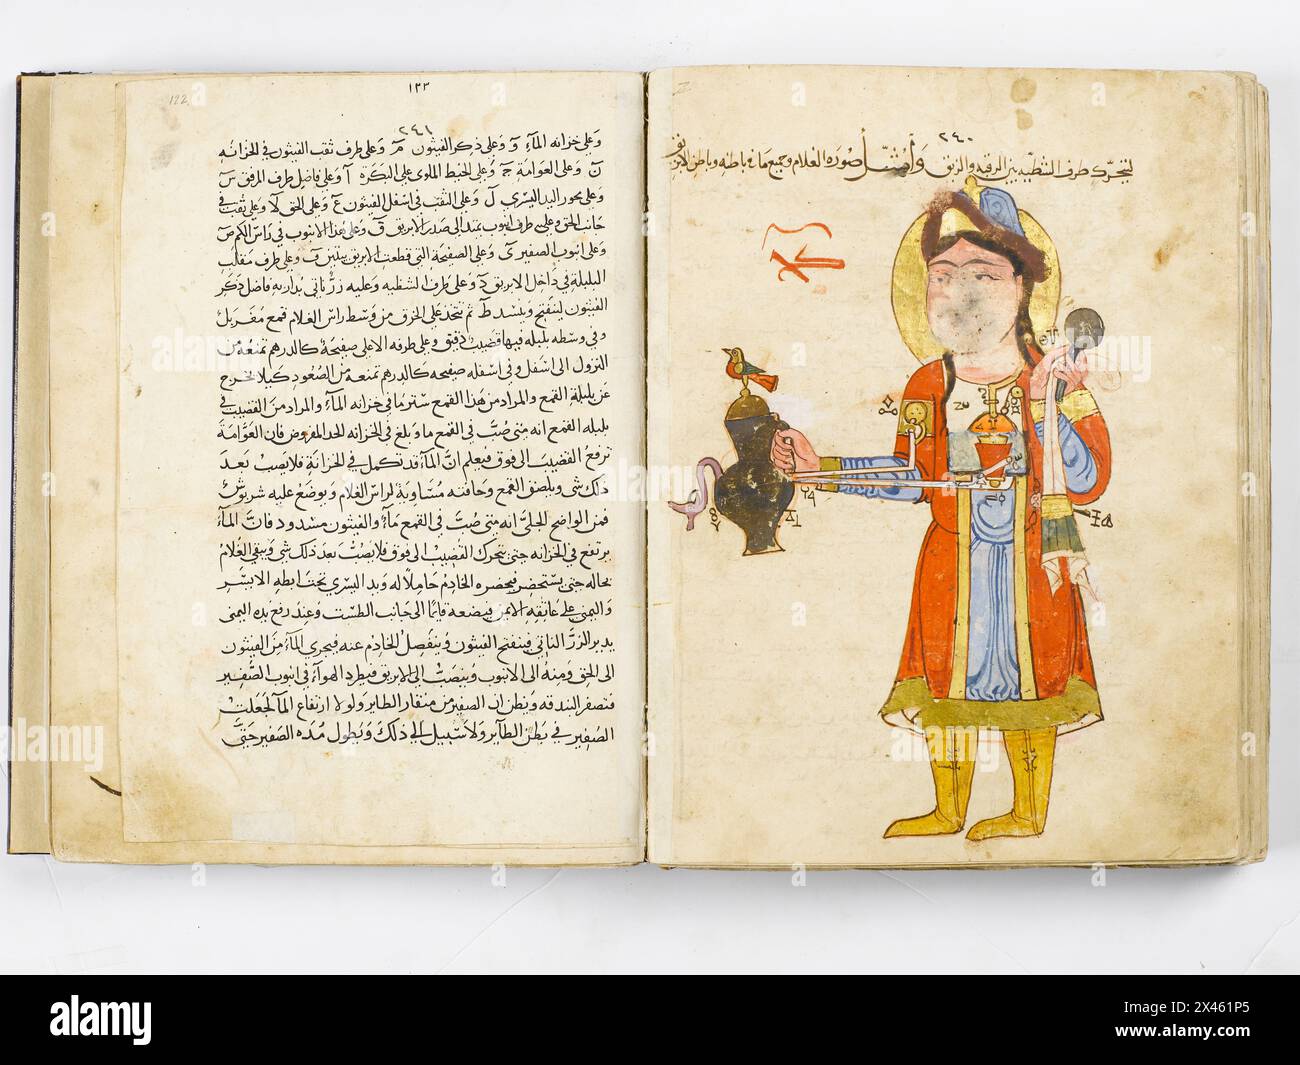 ٢٤٠
لتحرك طرف الشظيه بين المرفد والزنق وأمثل صورة الغلام وجميع ما فى باطنه وباطن الابريق
١٣٣
122
٢٤١
وعلى خزانه المآء و وعلى ذكر الفيثون م وعلى طرف ثقب الفيثون فى الخزانه
ن وعلى العوامة ح وعلى الخيط الملوى على البكرة أ وعلى فاضل طرف المرفق س
وعلى محور اليد اليسرى ل وعلى الثقب فى اسفل الفيثون ع وعلى الحق لا وعلى ثقب فى
جانب الحق وعلى طرف انبوب يمتد الى صدر الابريق ق وعلى هذا الانبوب فى رأس الكم ص
وعلى انبوب الصفير ى وعلى الصفيحة التى قطعت الابريق بيتين ف وعلى طرف مقلب
البلبلة فى داخل الابريق د وعلى طرف الشظيه وعليه زر ثانى بدارته فاضل ذكر
الفيثون لينفتح وينسد ط ثم يتخذ على الخرق من وسط راس الغلام قمع مغربل
وفى وسطه بلبله فيها قضيب دقيق وعلى طرفه الاعلى صفيحة كالدرهم تمنعه من
النزول الى اسفل وفى اسفله صفيحه كالدرهم تمنعه من الصعود كيلا يخرج
عن بلبلة القمع والمراد من هذا القمع ستر ما فى خزانه المآء والمراد من القضيب فى
بلبله القمع انه متى صب فى القمع ما وبلغ فى الخزانه الحد المفروض فان العوامة
ترفع القضيب الى فوق فيعلم ان المآء قد تكمل فى الخزانة فلا يصب بعد
ذلك شى ويلصق القمع وحافته مساوية لراس الغلام ويوضع عليه شربوش
فمن الواضح الجلى انه متى صب فى القمع مآء والفيثون مسدود فان المآء
يرتفع فى الخزانه حتى يتحرك القضيب الى فوق فلا يصب بعد ذلك شى ويبقى الغلام
بحاله حتى يستحضر فيحضره الخادم حاملا له ويد اليسرى تحت ابطه الايسر
واليمنى على عاتقه الايمن فيضعه قايما الى جانب الطست وعند رفع يده اليمنى
يدير الزر الثانى فينفتح الفيثون وينفصل الخادم عنه فيجرى المآء من الفيثون
الى الحق ومنه الى الانبوب وينصب الى الابريق فيطرد الهوآء فى انبوب الصفير
فتصفر البندقه ويظن ان الصفير من منقار الطاير ولولا ارتفاع المآء لجعلت
الصفير فى بطن الطآير ولا سبيل الى ذلك ويطول مده الصفير حتى
alamy
Image ID: 2X461P5
www.alamy.com